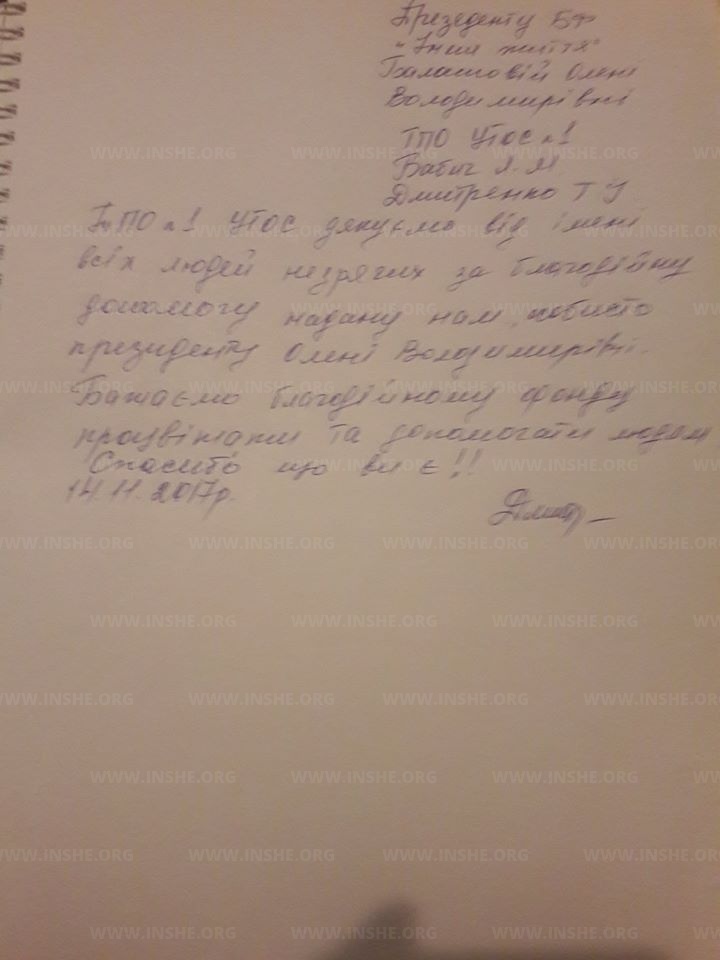 Презеденту БФ
"Інше життя"
Балашовій Олені
Володимирівні
ТПО УТОС №1
Бабич Л.М
Дмитренко Т У
ТПО №1 УТОС дякуємо від імені
всіх людей незрячих за благодійну
допомогу надану нам, особисто
президенту Олені Володимирівні.
Бажаємо благодійному фонду
процвітати та допомогати людям
Спасибо що ви є!!
14.11.2017р.
WWW.INSHE.ORG